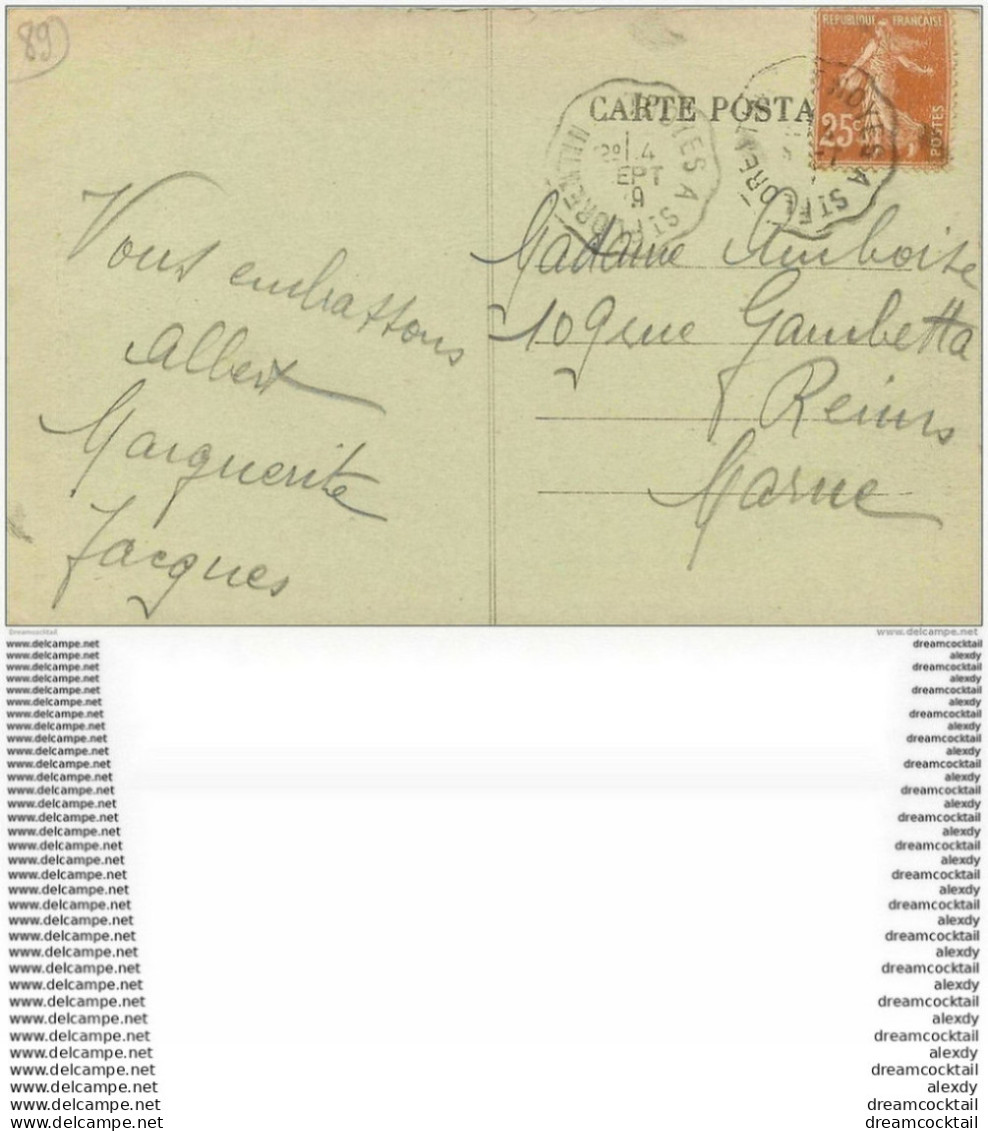 89
CARTE POSTA
REPUBLIQUE FRANÇAISE
25c
POSTES
TROYES A ST FLORENTIN
2° 4
EPT
9
OYES A ST FLOREN
Vous embrassons
Albert
Marguerite
Jacques
Madame Amboise
109 rue Gambetta
Reims
Marne
Dreamcocktail
www.delcampe.net
www.delcampe.net dreamcocktail
www.delcampe.net alexdy
www.delcampe.net dreamcocktail
www.delcampe.net alexdy
www.delcampe.net dreamcocktail
www.delcampe.net alexdy
www.delcampe.net dreamcocktail
www.delcampe.net alexdy
www.delcampe.net dreamcocktail
www.delcampe.net alexdy
www.delcampe.net dreamcocktail
www.delcampe.net alexdy
www.delcampe.net dreamcocktail
www.delcampe.net alexdy
www.delcampe.net dreamcocktail
www.delcampe.net alexdy
www.delcampe.net dreamcocktail
www.delcampe.net alexdy
www.delcampe.net dreamcocktail
www.delcampe.net alexdy
www.delcampe.net dreamcocktail
www.delcampe.net alexdy
www.delcampe.net dreamcocktail
www.delcampe.net alexdy
www.delcampe.net dreamcocktail
www.delcampe.net alexdy
www.delcampe.net dreamcocktail
www.delcampe.net alexdy
www.delcampe.net dreamcocktail
www.delcampe.net alexdy
www.delcampe.net dreamcocktail
www.delcampe.net alexdy
www.delcampe.net dreamcocktail
www.delcampe.net dreamcocktail